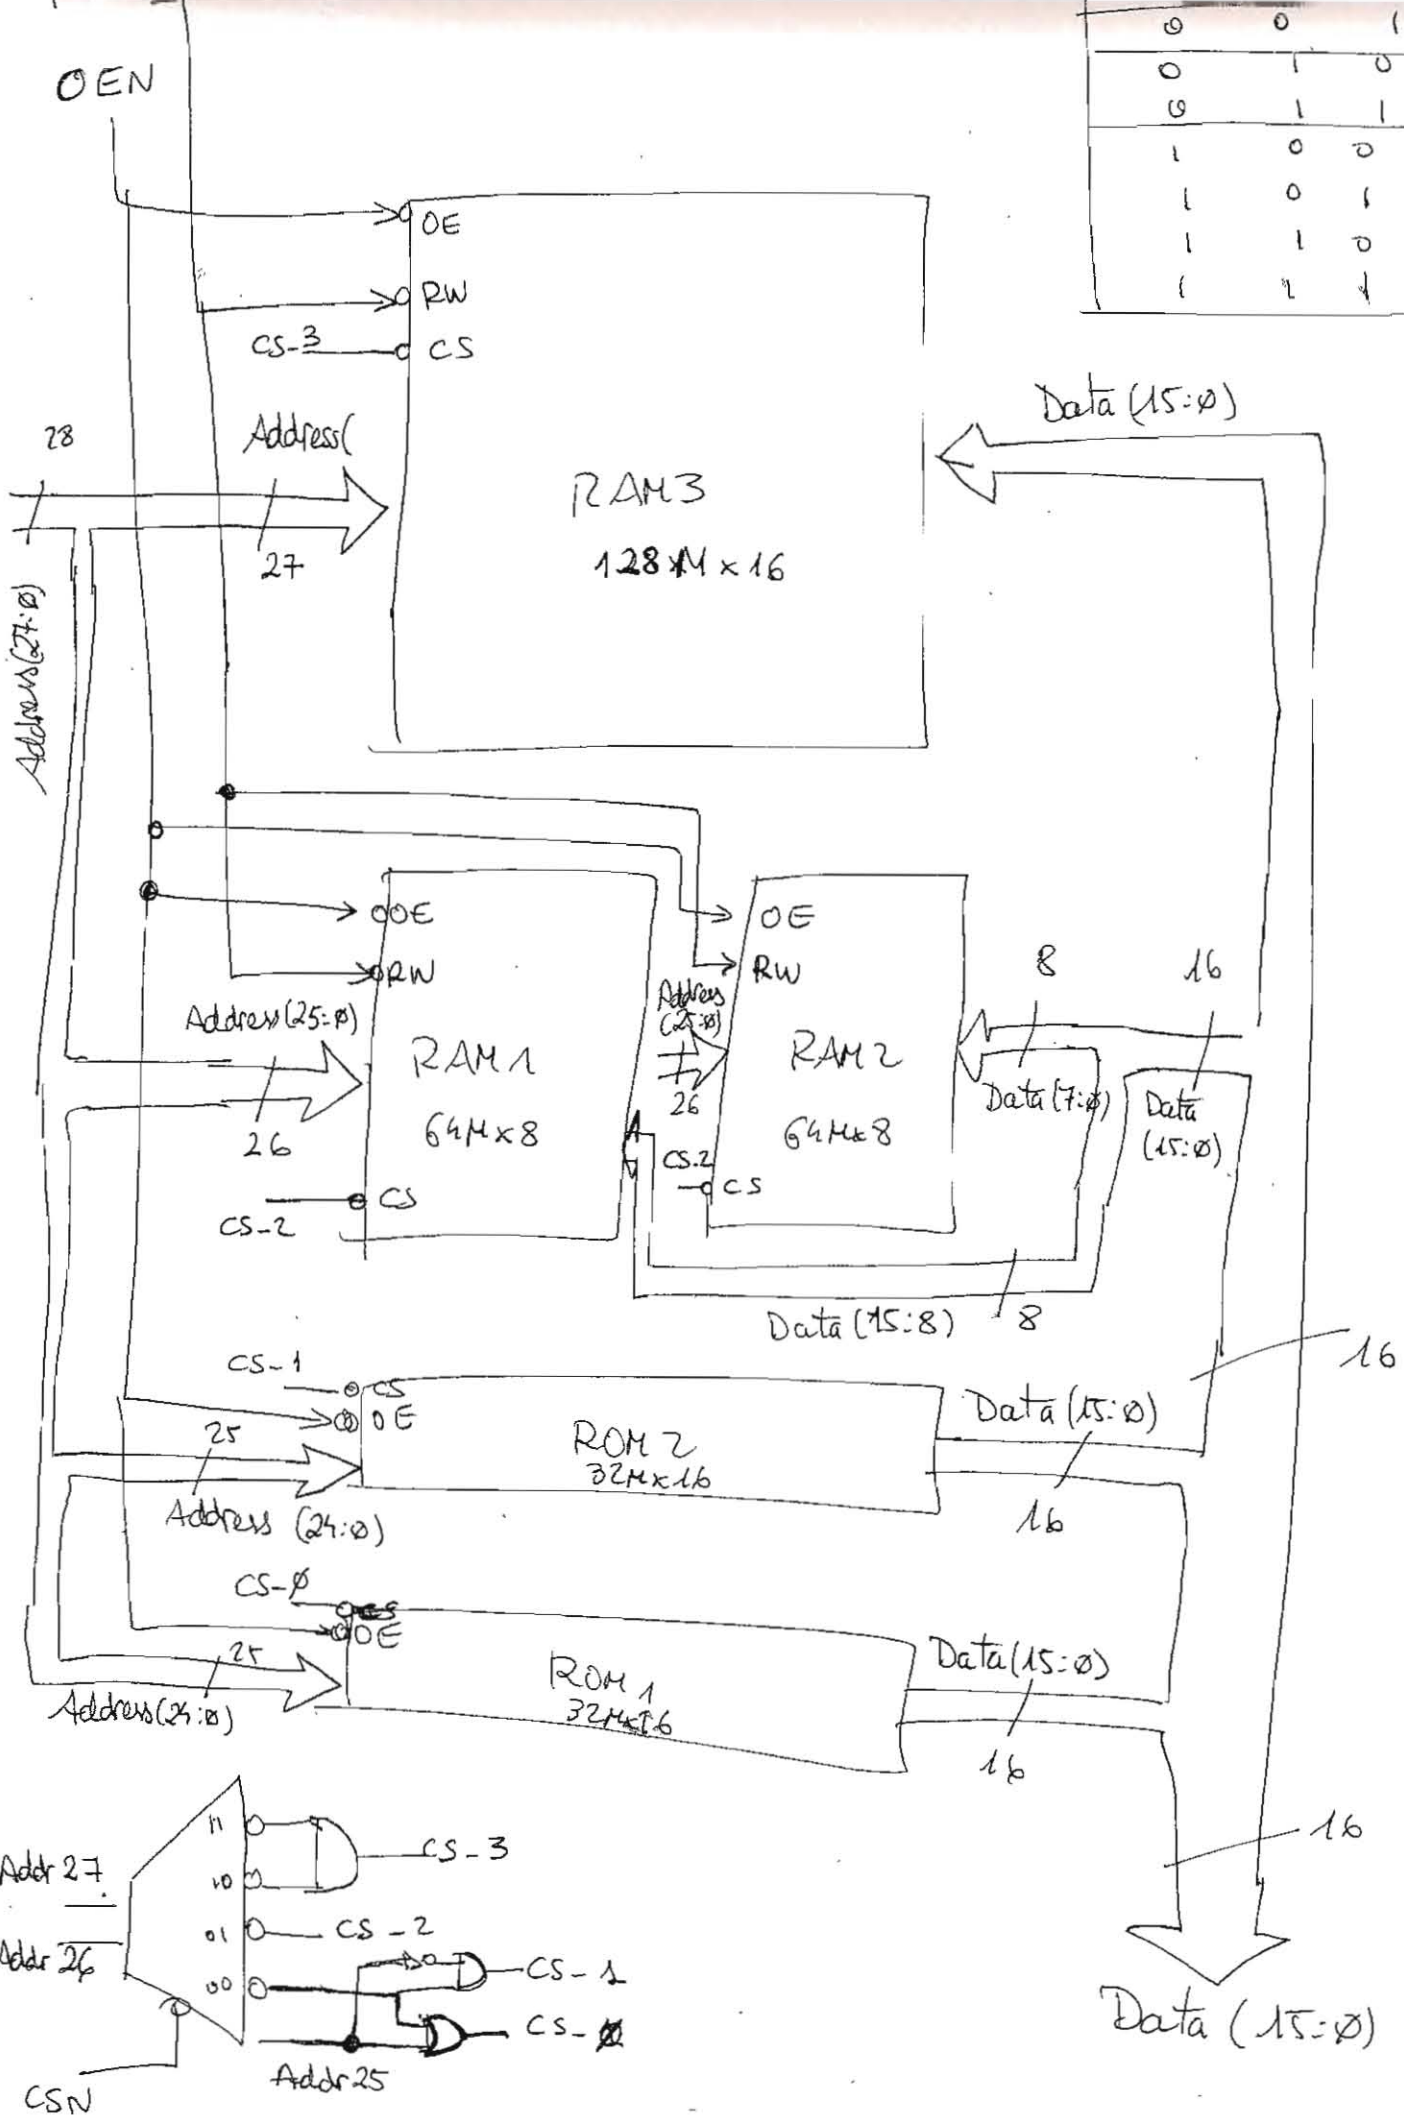 0 0 1
0 1 0
0 1 1
1 0 0
1 0 1
1 1 0
1 1 1
OEN
OE
RW
CS-3
CS
28
Address(
27
Address(27:Ø)
RAM3
128M x 16
Data (15:Ø)
OE
RW
Address(25:Ø)
26
RAM1
64Mx8
CS
CS-2
OE
RW
Address
(25:Ø)
26
RAM2
64Mx8
CS-2
CS
8
16
Data(7:Ø)
Data
(15:Ø)
Data (15:8)
8
16
CS-1
CS
OE
25
Address (24:Ø)
ROM 2
32Mx16
Data (15:Ø)
16
CS-Ø
OE
25
Address(24:Ø)
ROM 1
32Mx16
Data(15:Ø)
16
16
Data (15:Ø)
Addr 27
Addr 26
11
10
01
00
CS-3
CS-2
CS-1
CS-Ø
Addr 25
CSN